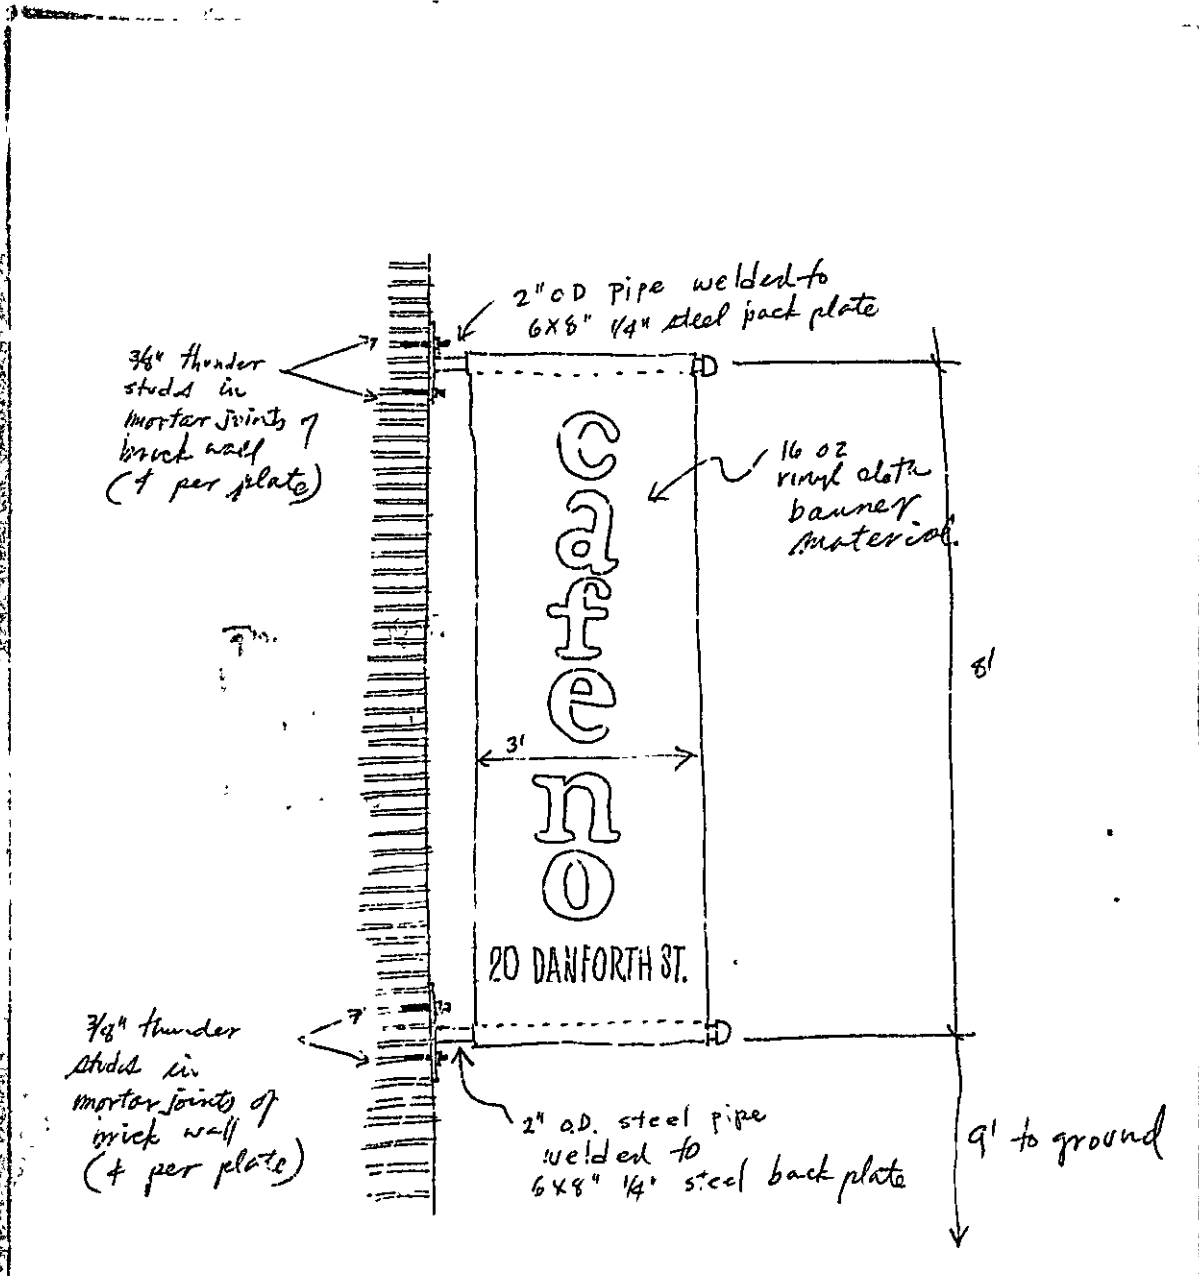 2" OD pipe welded to
6X8" 1/4" steel back plate
3/8" thunder
studs in
mortar joints of
brick wall
(4 per plate)
16 oz
vinyl cloth
banner
material.
c
a
f
e
n
o
3'
8'
20 DANFORTH ST.
3/8" thunder
studs in
mortar joints of
brick wall
(4 per plate)
2" O.D. steel pipe
welded to
6X8" 1/4" steel back plate
9' to ground